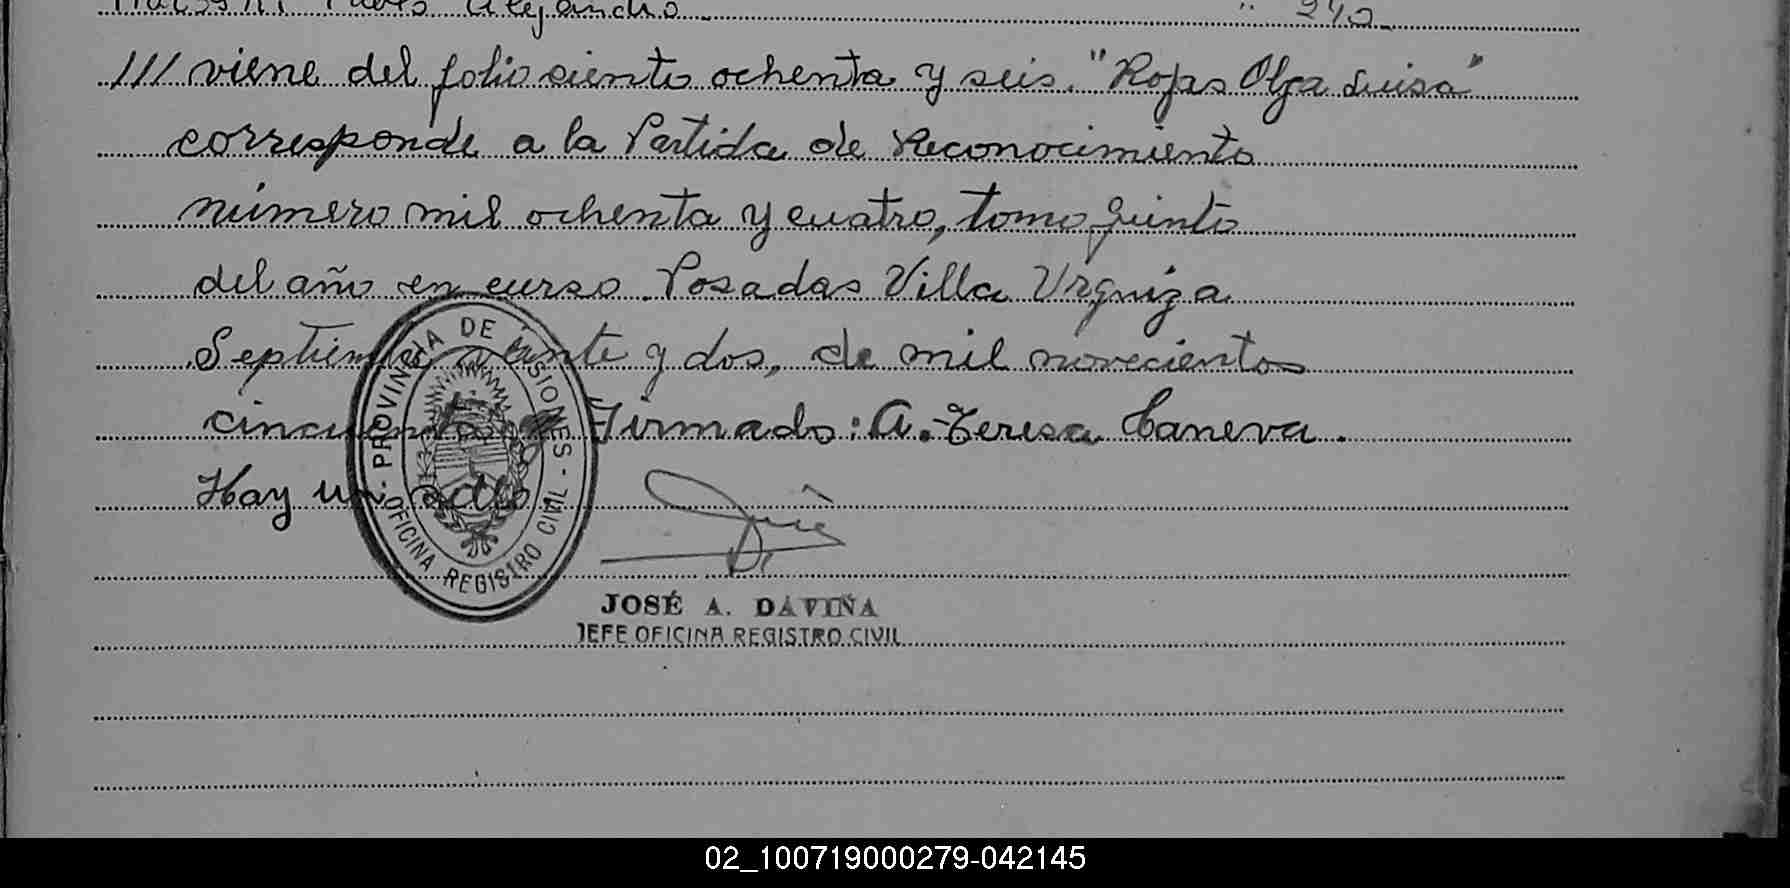 Alejandro " 240
/// viene del folio ciento ochenta y seis. "Rojas Olga Luisa"
corresponde a la Partida de Reconocimiento
número mil ochenta y cuatro, tomo quinto
del año en curso. Posadas Villa Urquiza
Septiembre veinte y dos, de mil novecientos
cincuenta y Firmado: A. Teresa Caneva.
Hay un sello
PROVINCIA DE MISIONES - OFICINA REGISTRO CIVIL -
JOSÉ A. DAVIÑA
JEFE OFICINA REGISTRO CIVIL
02_100719000279-042145